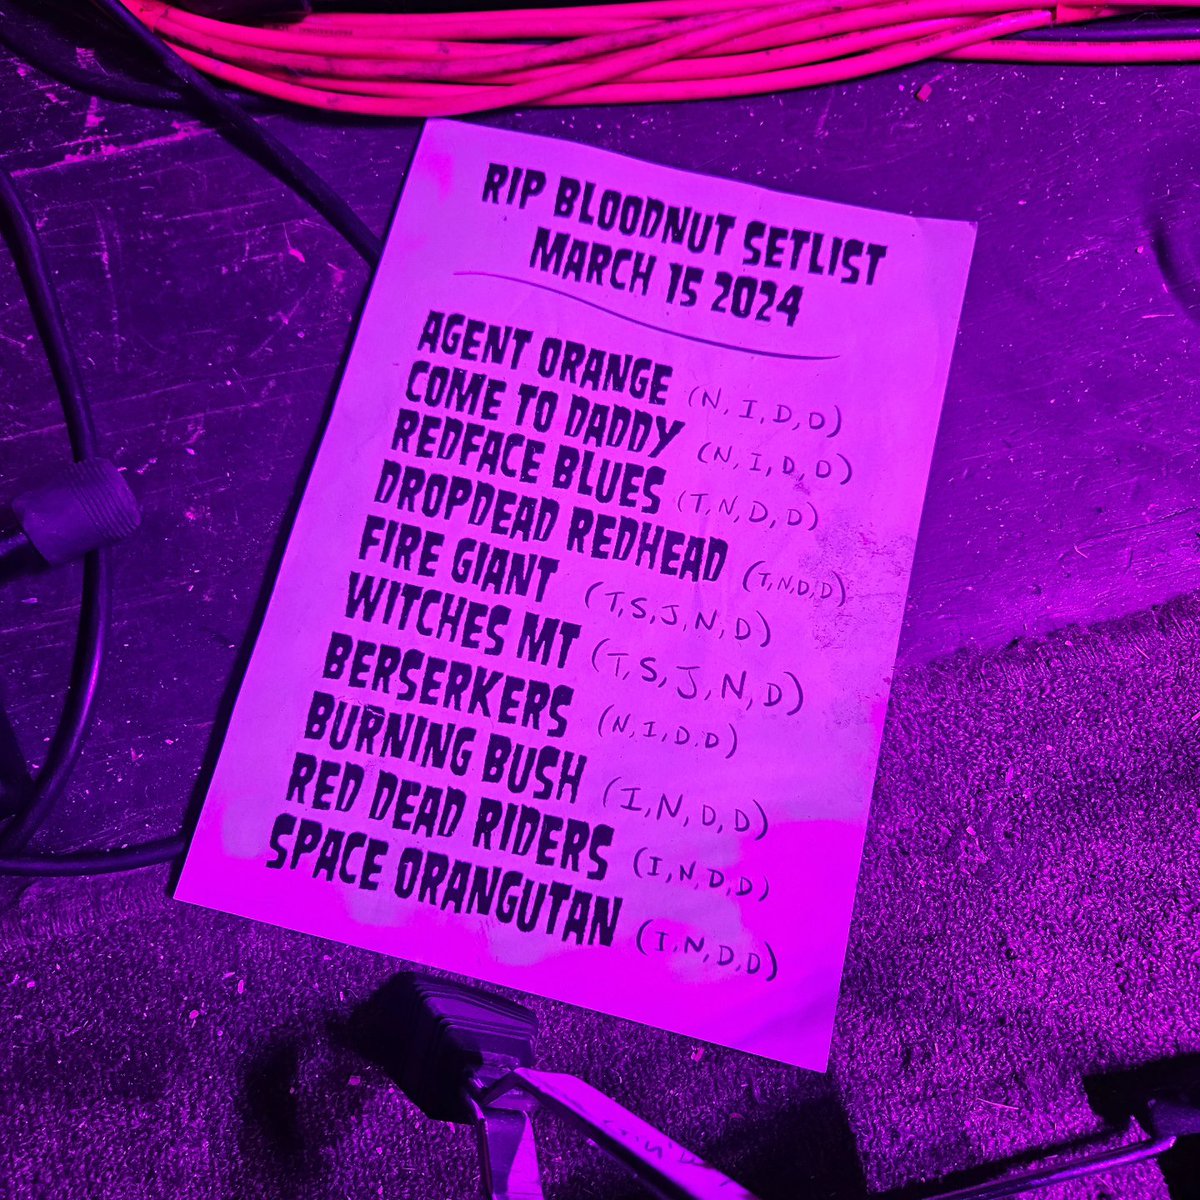 RIP BLOODNUT SETLIST
MARCH 15 2024
AGENT ORANGE (N, I, D, D)
COME TO DADDY (N, I, D, D)
REDFACE BLUES (T, N, D, D)
DROPDEAD REDHEAD (T, N, D, D)
FIRE GIANT (T, S, J, N, D)
WITCHES MT (T, S, J, N, D)
BERSERKERS (N, I, D, D)
BURNING BUSH (I, N, D, D)
RED DEAD RIDERS (I, N, D, D)
SPACE ORANGUTAN (I, N, D, D)